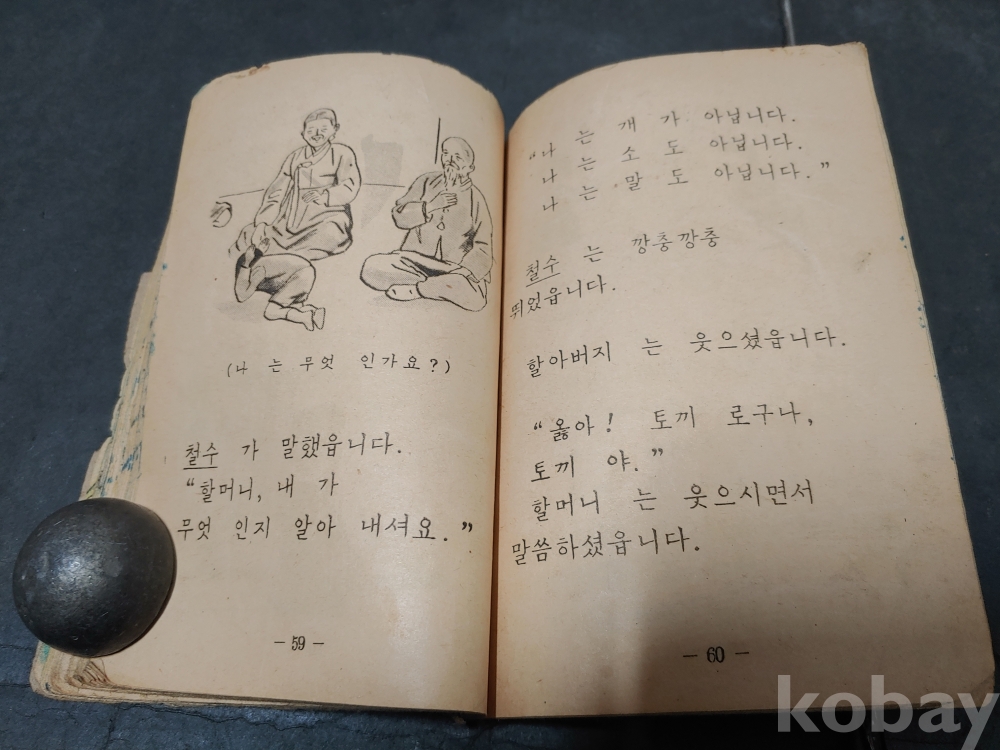 (나 는 무엇 인가요?)
철수 가 말했읍니다.
“할머니, 내 가
무엇 인지 알아 내셔요.”
— 59 —
“나 는 개 가 아닙니다.
나 는 소 도 아닙니다.
나 는 말 도 아닙니다.”
철수 는 깡충깡충
뛰었읍니다.
할아버지 는 웃으셨읍니다.
“옳아! 토끼 로구나,
토끼 야.”
할머니 는 웃으시면서
말씀하셨읍니다.
— 60 —
kobay